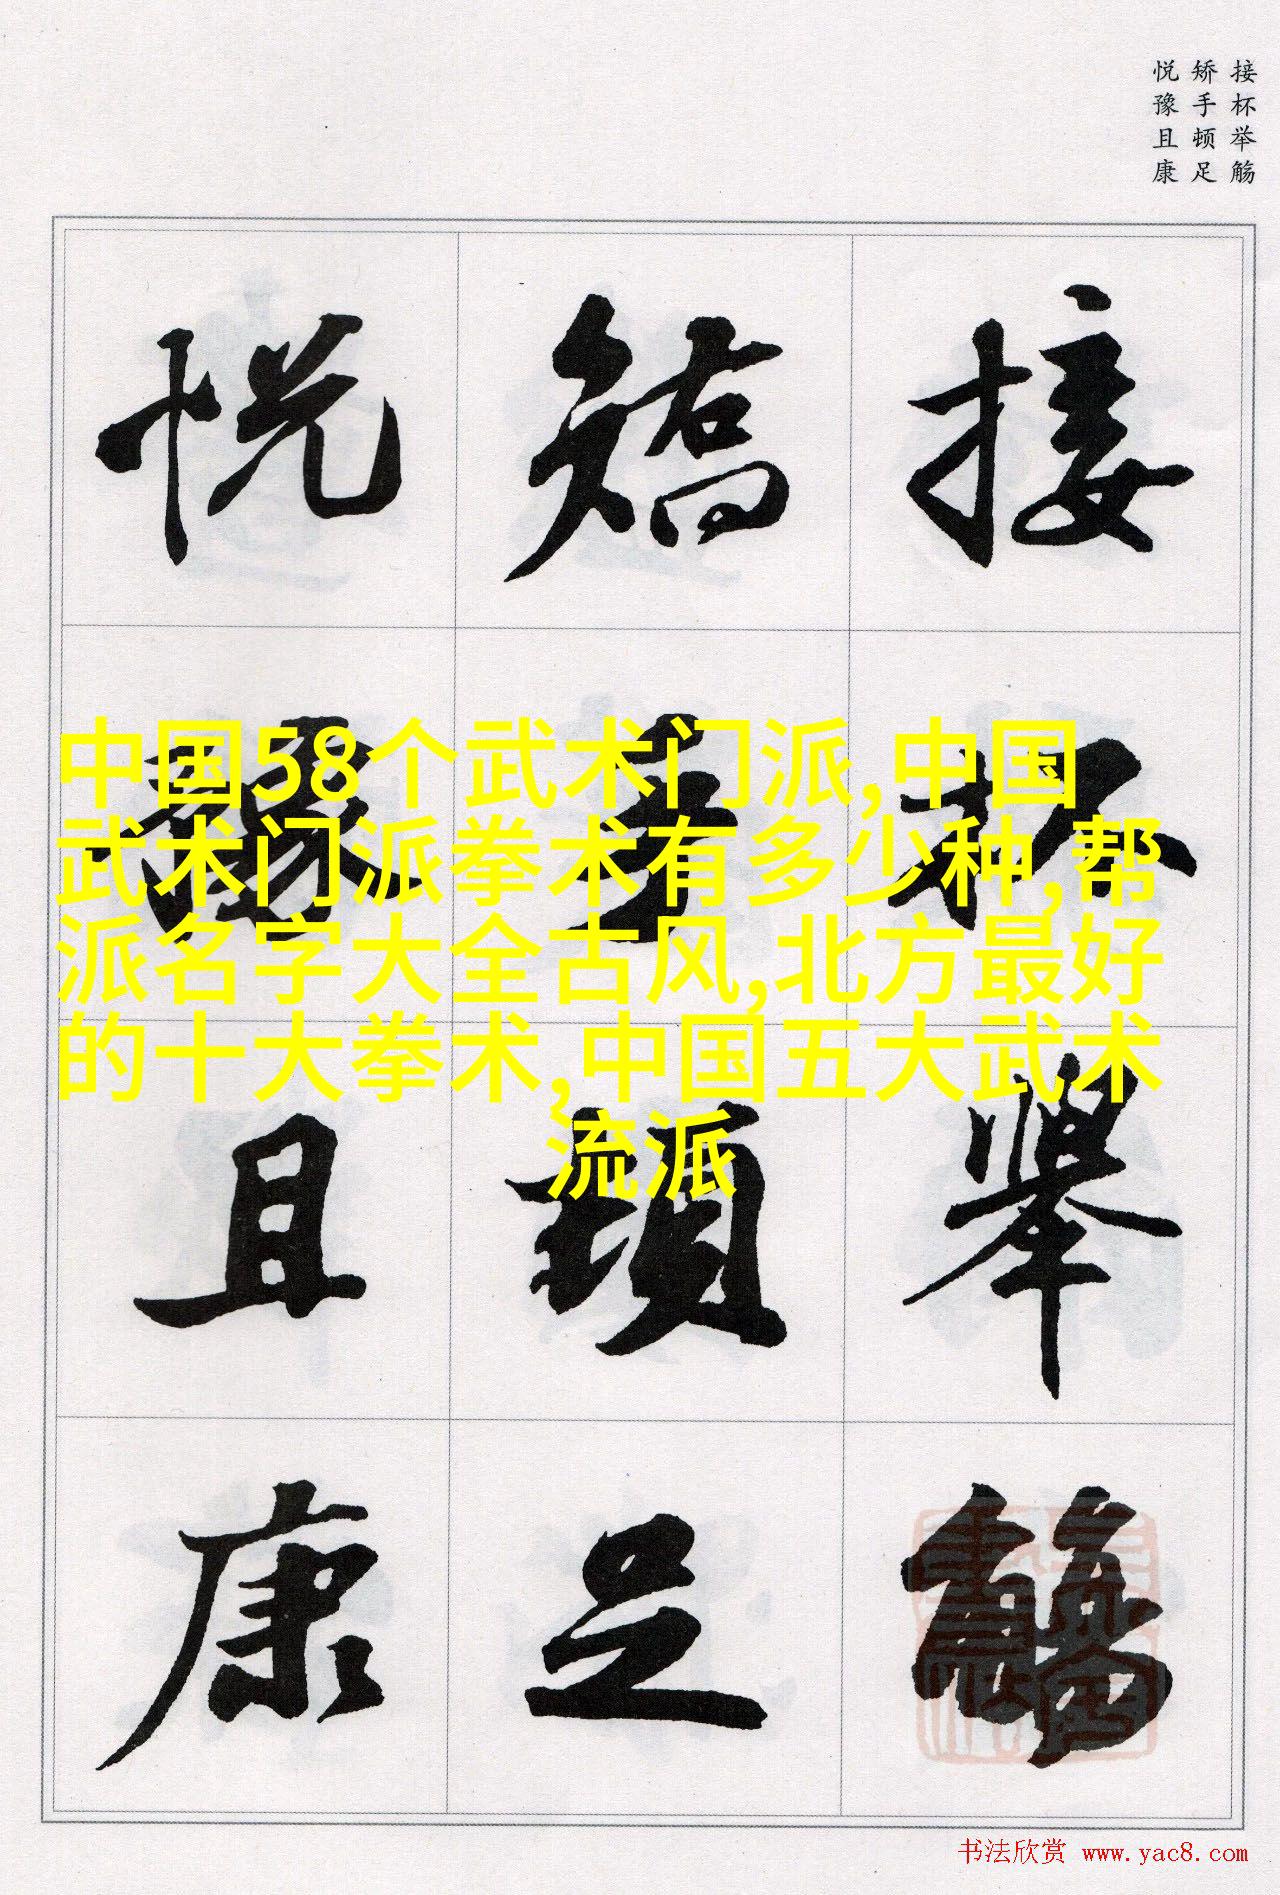 接杯举觞
矫手顿足
悦豫且康
接杯舉觴
矯手頓足
悦豫且康
中国58个武术门派,中国
武术门派拳术有多少种,帮
派名字大全古风,北方最好
的十大拳术,中国五大武术
流派
书法欣赏 www.yac8.com